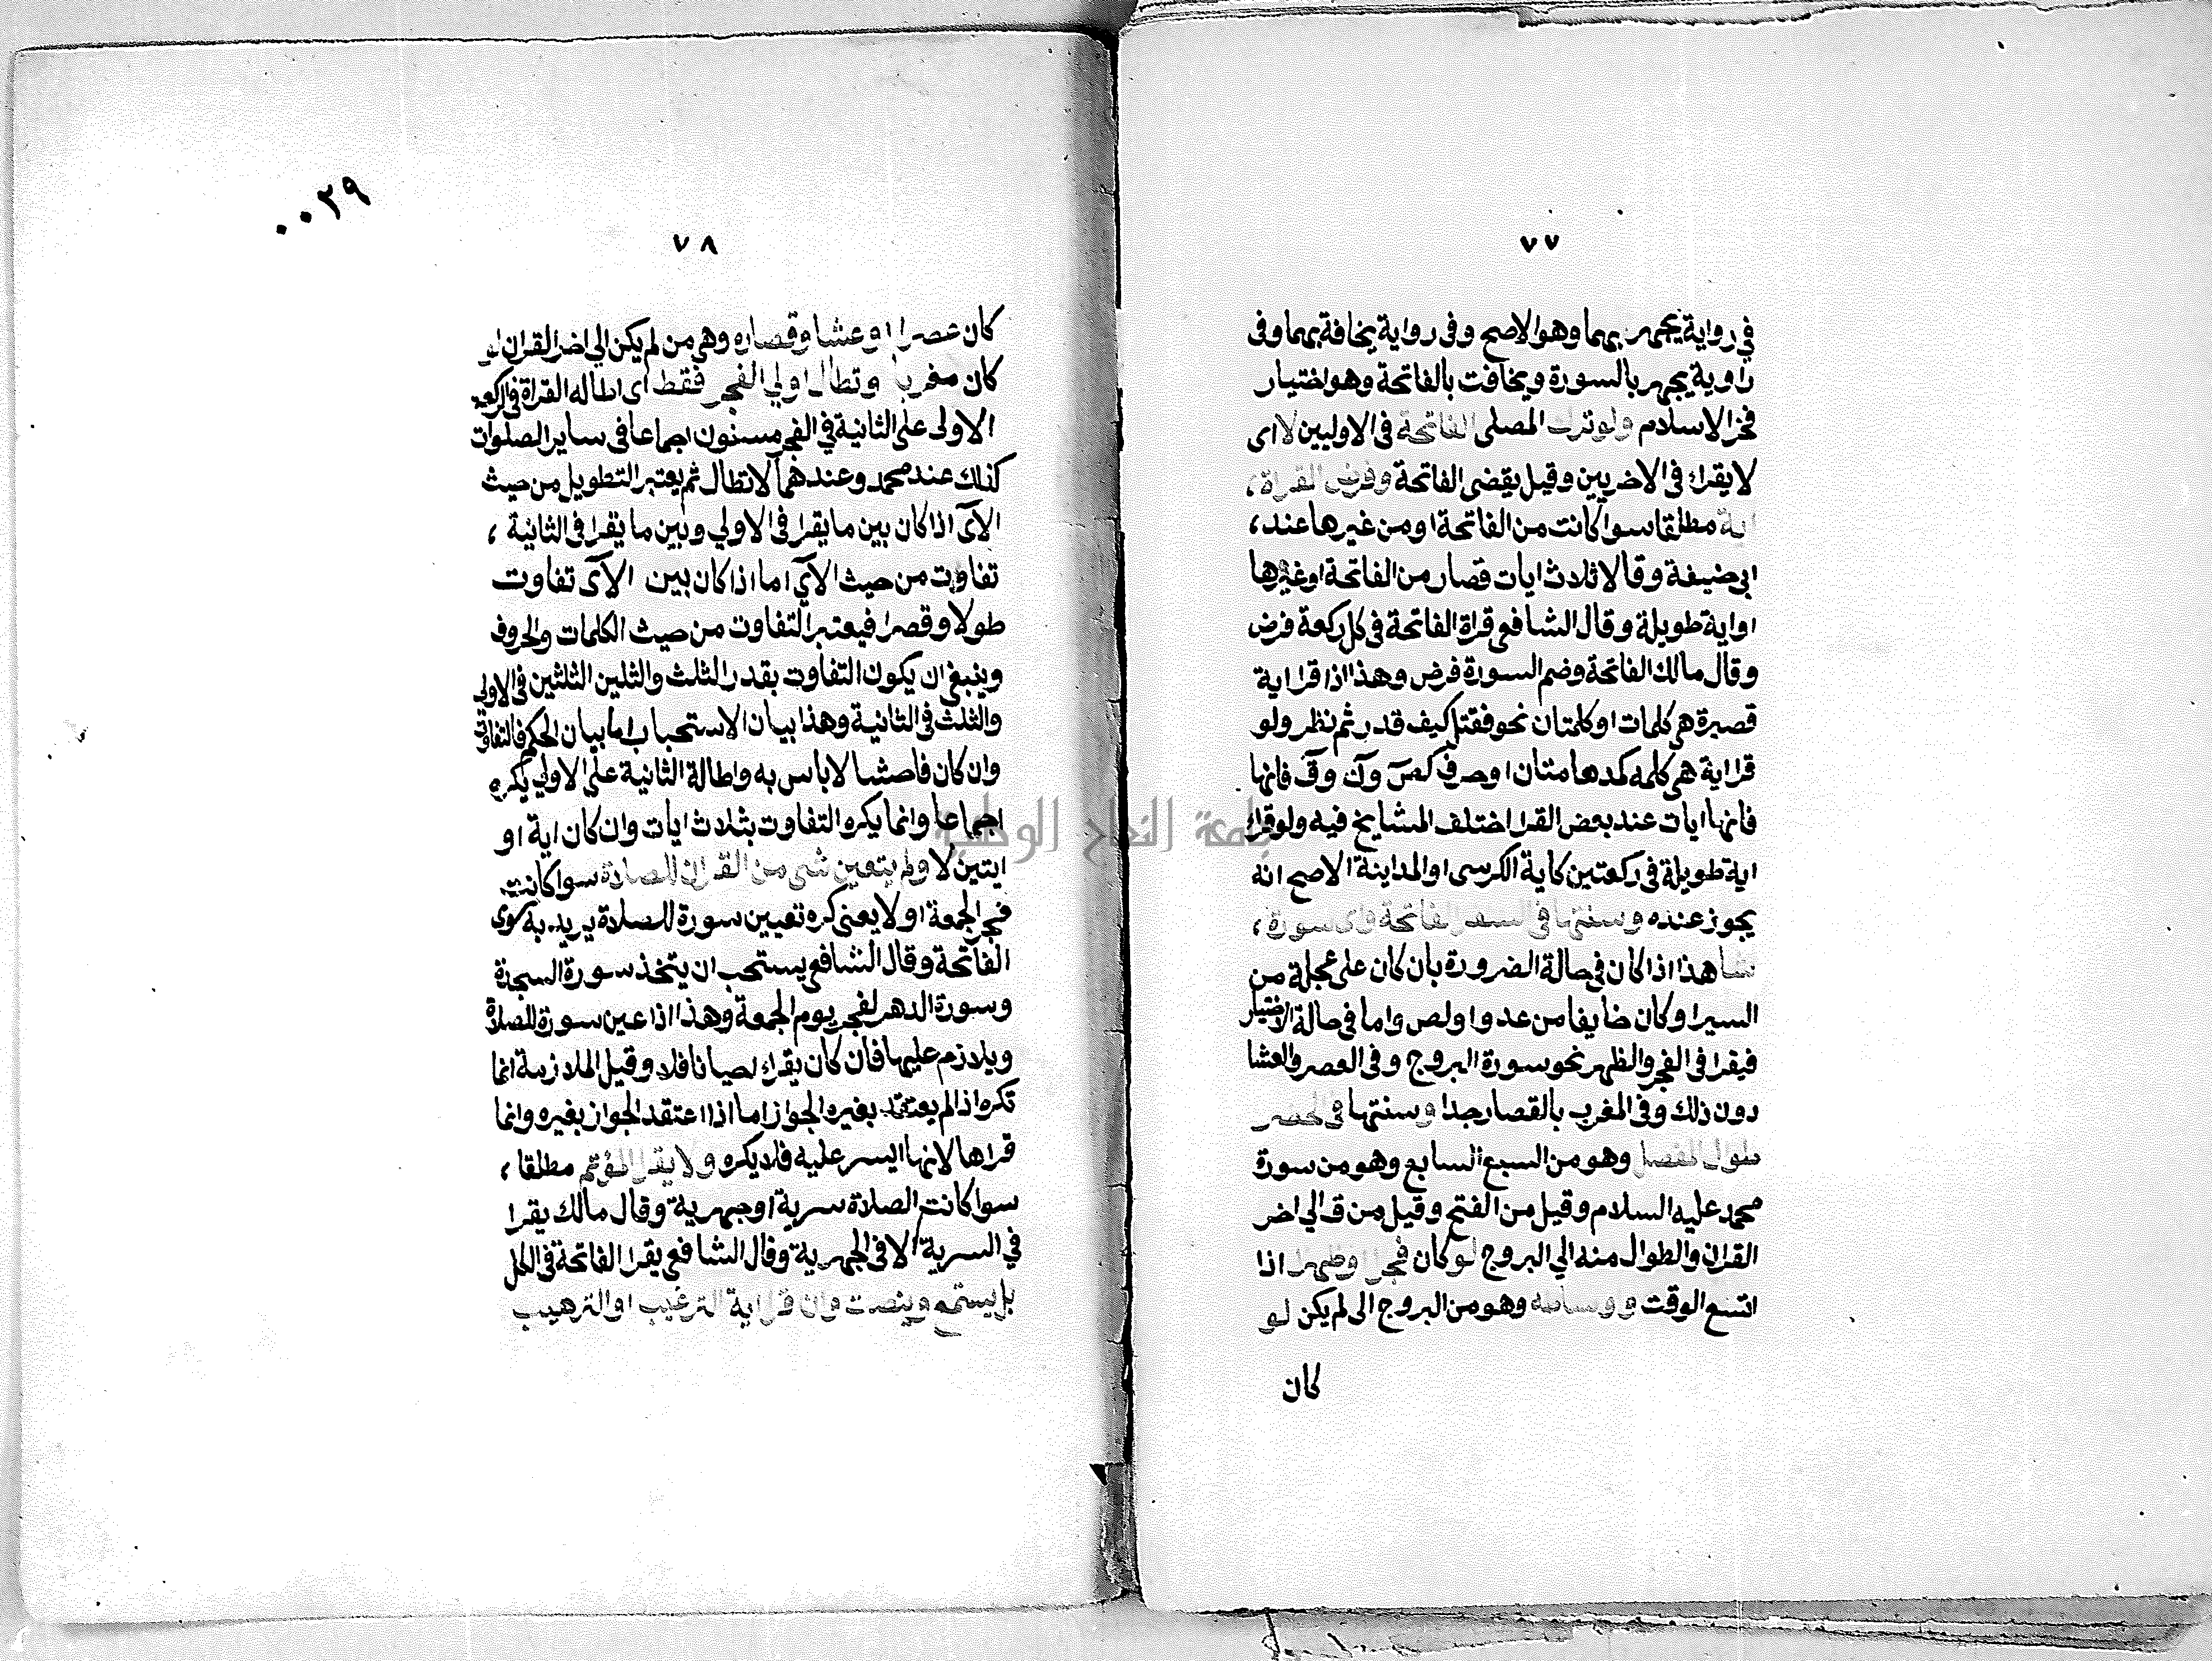 ٧٧
في رواية يجهر بهما وهو الاصح وفى رواية يخافة بهما وفى
راوية يجهر بالسورة ويخافت بالفاتحة وهو اختيار
فخر الاسلام ولو ترك المصلى الفاتحة فى الاوليين لا اى
لا يقراء فى الاخريين وقيل يقضى الفاتحة وفرض القراة،
اية مطلقا سوا كانت من الفاتحة او من غيرها عند،
ابى حنيفة وقالا ثلاث ايات قصار من الفاتحة او غيرها
او اية طويلة وقال الشافعى قراة الفاتحة فى كل ركعة فرض
وقال مالك الفاتحة وضم السورة فرض وهذا اذا قرا اية
قصيرة هى كلمات او كلمتان نحو فقتل كيف قدر ثم نظر ولو
قرا اية هى كلمه كمدهامتان او حرف كص ون وق فانها
فانها ايات عند بعض القرا اختلف المشايخ فيه ولو قراء
اية طويلة فى ركعتين كاية الكرسى او المداينة الاصح انه
يجوز عنده وسنتها في السفر الفاتحة واى سورة،
شا هذا اذا كان فى حالة الضرورة بان كان على عجلة من
السير او كان خايفا من عدو او لص واما فى حالة الاختيار
فيقرا فى الفجر والظهر نحو سورة البروج وفى العصر والعشا
دون ذلك وفى المغرب بالقصار جدا وسنتها فى الحضر
طوال المفصل وهو من السبع السابع وهو من سورة
محمد عليه السلام وقيل من الفتح وقيل من ق الي اخر
القران والطوال منه الي البروج لو كان فجرا وظهرا اذا
اتسع الوقت و وساطه وهو من البروج الى لم يكن لو
كان
٠٠٣٩
٧٨
كان عصرا او عشا وقصاره وهى من لم يكن الي اخر القران لو
كان مغربا وتطال اولي الفجر فقط اى اطاله القراة فى الركعة
الاولى على الثانية في الفجر مسنون اجماعا فى ساير الصلوات
كذلك عند محمد وعندهما لا تطال ثم يعتبر التطويل من حيث
الآى اذا كان بين ما يقرا فى الاولي وبين ما يقرا فى الثانية،
تفاوت من حيث الآي اما اذا كان بين الآى تفاوت
طولا وقصرا فيعتبر التفاوت من حيث الكلمات والحروف
وينبغى ان يكون التفاوت بقدر الثلث والثلين الثلثين فى الاولى
والثلث فى الثانية وهذا بيان الاستحباب اما بيان الحكم فالتفاوت
وان كان فاحشا لا باس به واطالة الثانية على الاولي يكره
اجماعا وانما يكره التفاوت بثلاث ايات وان كان اية او
ايتين لا ولم يتعين شى من القران للصلاة سوا كانت
فجر الجمعة او لا يعنى كره تعيين سورة للصلاة يريد به سوى
الفاتحة وقال الشافعى يستحب ان يتخذ سورة السجدة
وسورة الدهر لفجر يوم الجمعة وهذا اذا عين سورة للصلاة
ويلازم عليها فان كان يقراء احيانا فلا وقيل الملازمة انما
تكره اذا لم يعتقد بغيره الجواز اما اذا اعتقد الجواز بغيره وانما
قراها لانها ايسر عليه فلا يكره ولا يقرا المؤتم مطلقا،
سوا كانت الصلاة سرية او جهرية وقال مالك يقرا
في السرية الا فى الجهرية وقال الشافعى يقرا الفاتحة فى الكل
بل يستمع وينصت وان قرا اية الترغيب او الترهيب
جامعة النجاح الوطنية